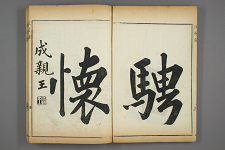 騁
懷
成親王